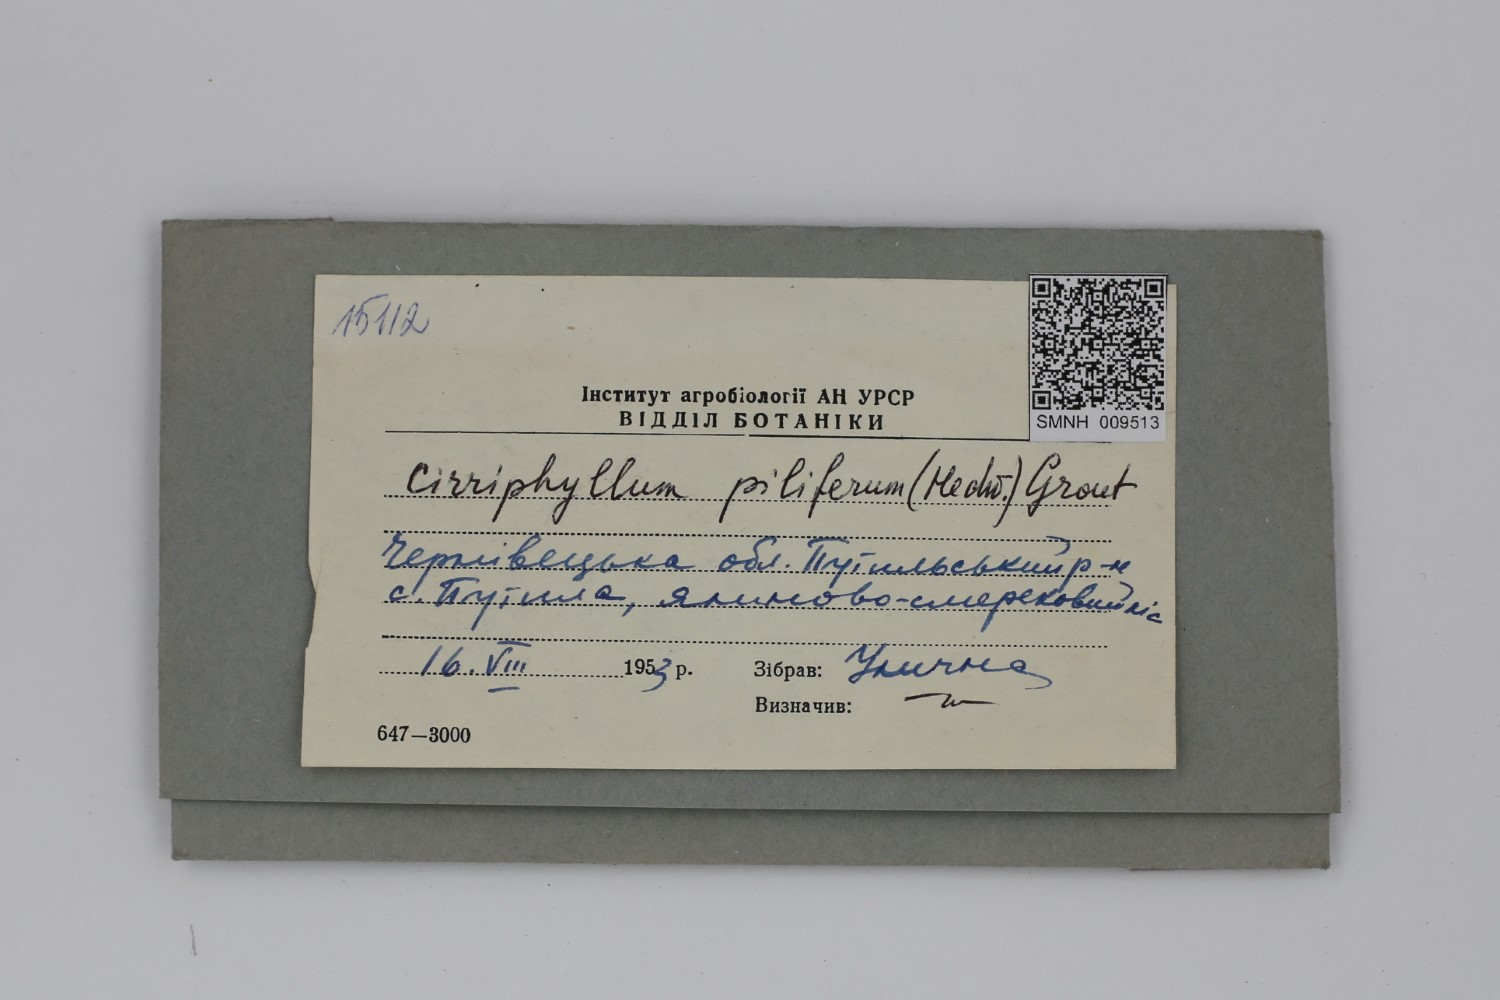 15112
Інститут агробіології АН УРСР
ВІДДІЛ БОТАНІКИ
SMNH 009513
Cirriphyllum piliferum (Hedw.) Grout
Чернівецька обл. Путильський р-н
с. Путила, ялиново-смерековий ліс
16. VIII 1953 р. Зібрав: Улична
Визначив: —"—
647—3000